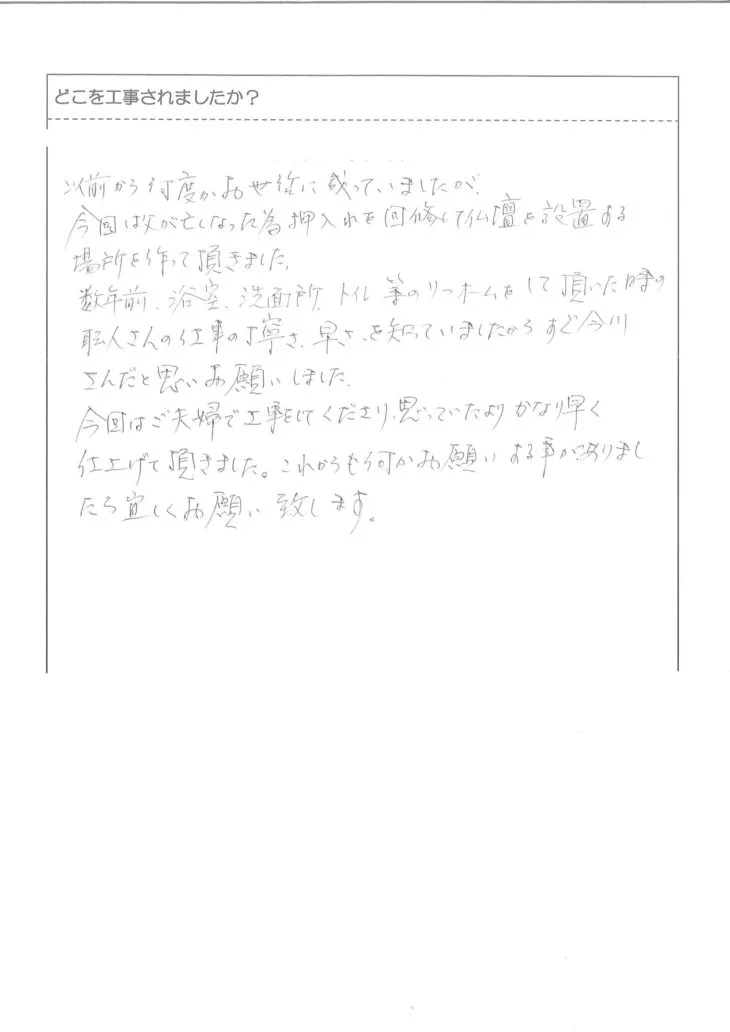 どこを工事されましたか?
以前から何度かお世給に成っていましたが、
今回は父が亡くなった為押入れを回修して仏壇を設置する
場所を作って頂きました。
数年前、浴室、洗面所、トイレ等のリフォームをして頂いた時の
職人さんの仕事の丁寧さ、早さ、を知っていましたからすぐ今川
さんだと思いお願いしました。
今回はご夫婦で工事をしてくださり、思っていたよりかなり早く
仕上げて頂きました。これからも何かお願いする事がありまし
たら宜しくお願い致します。